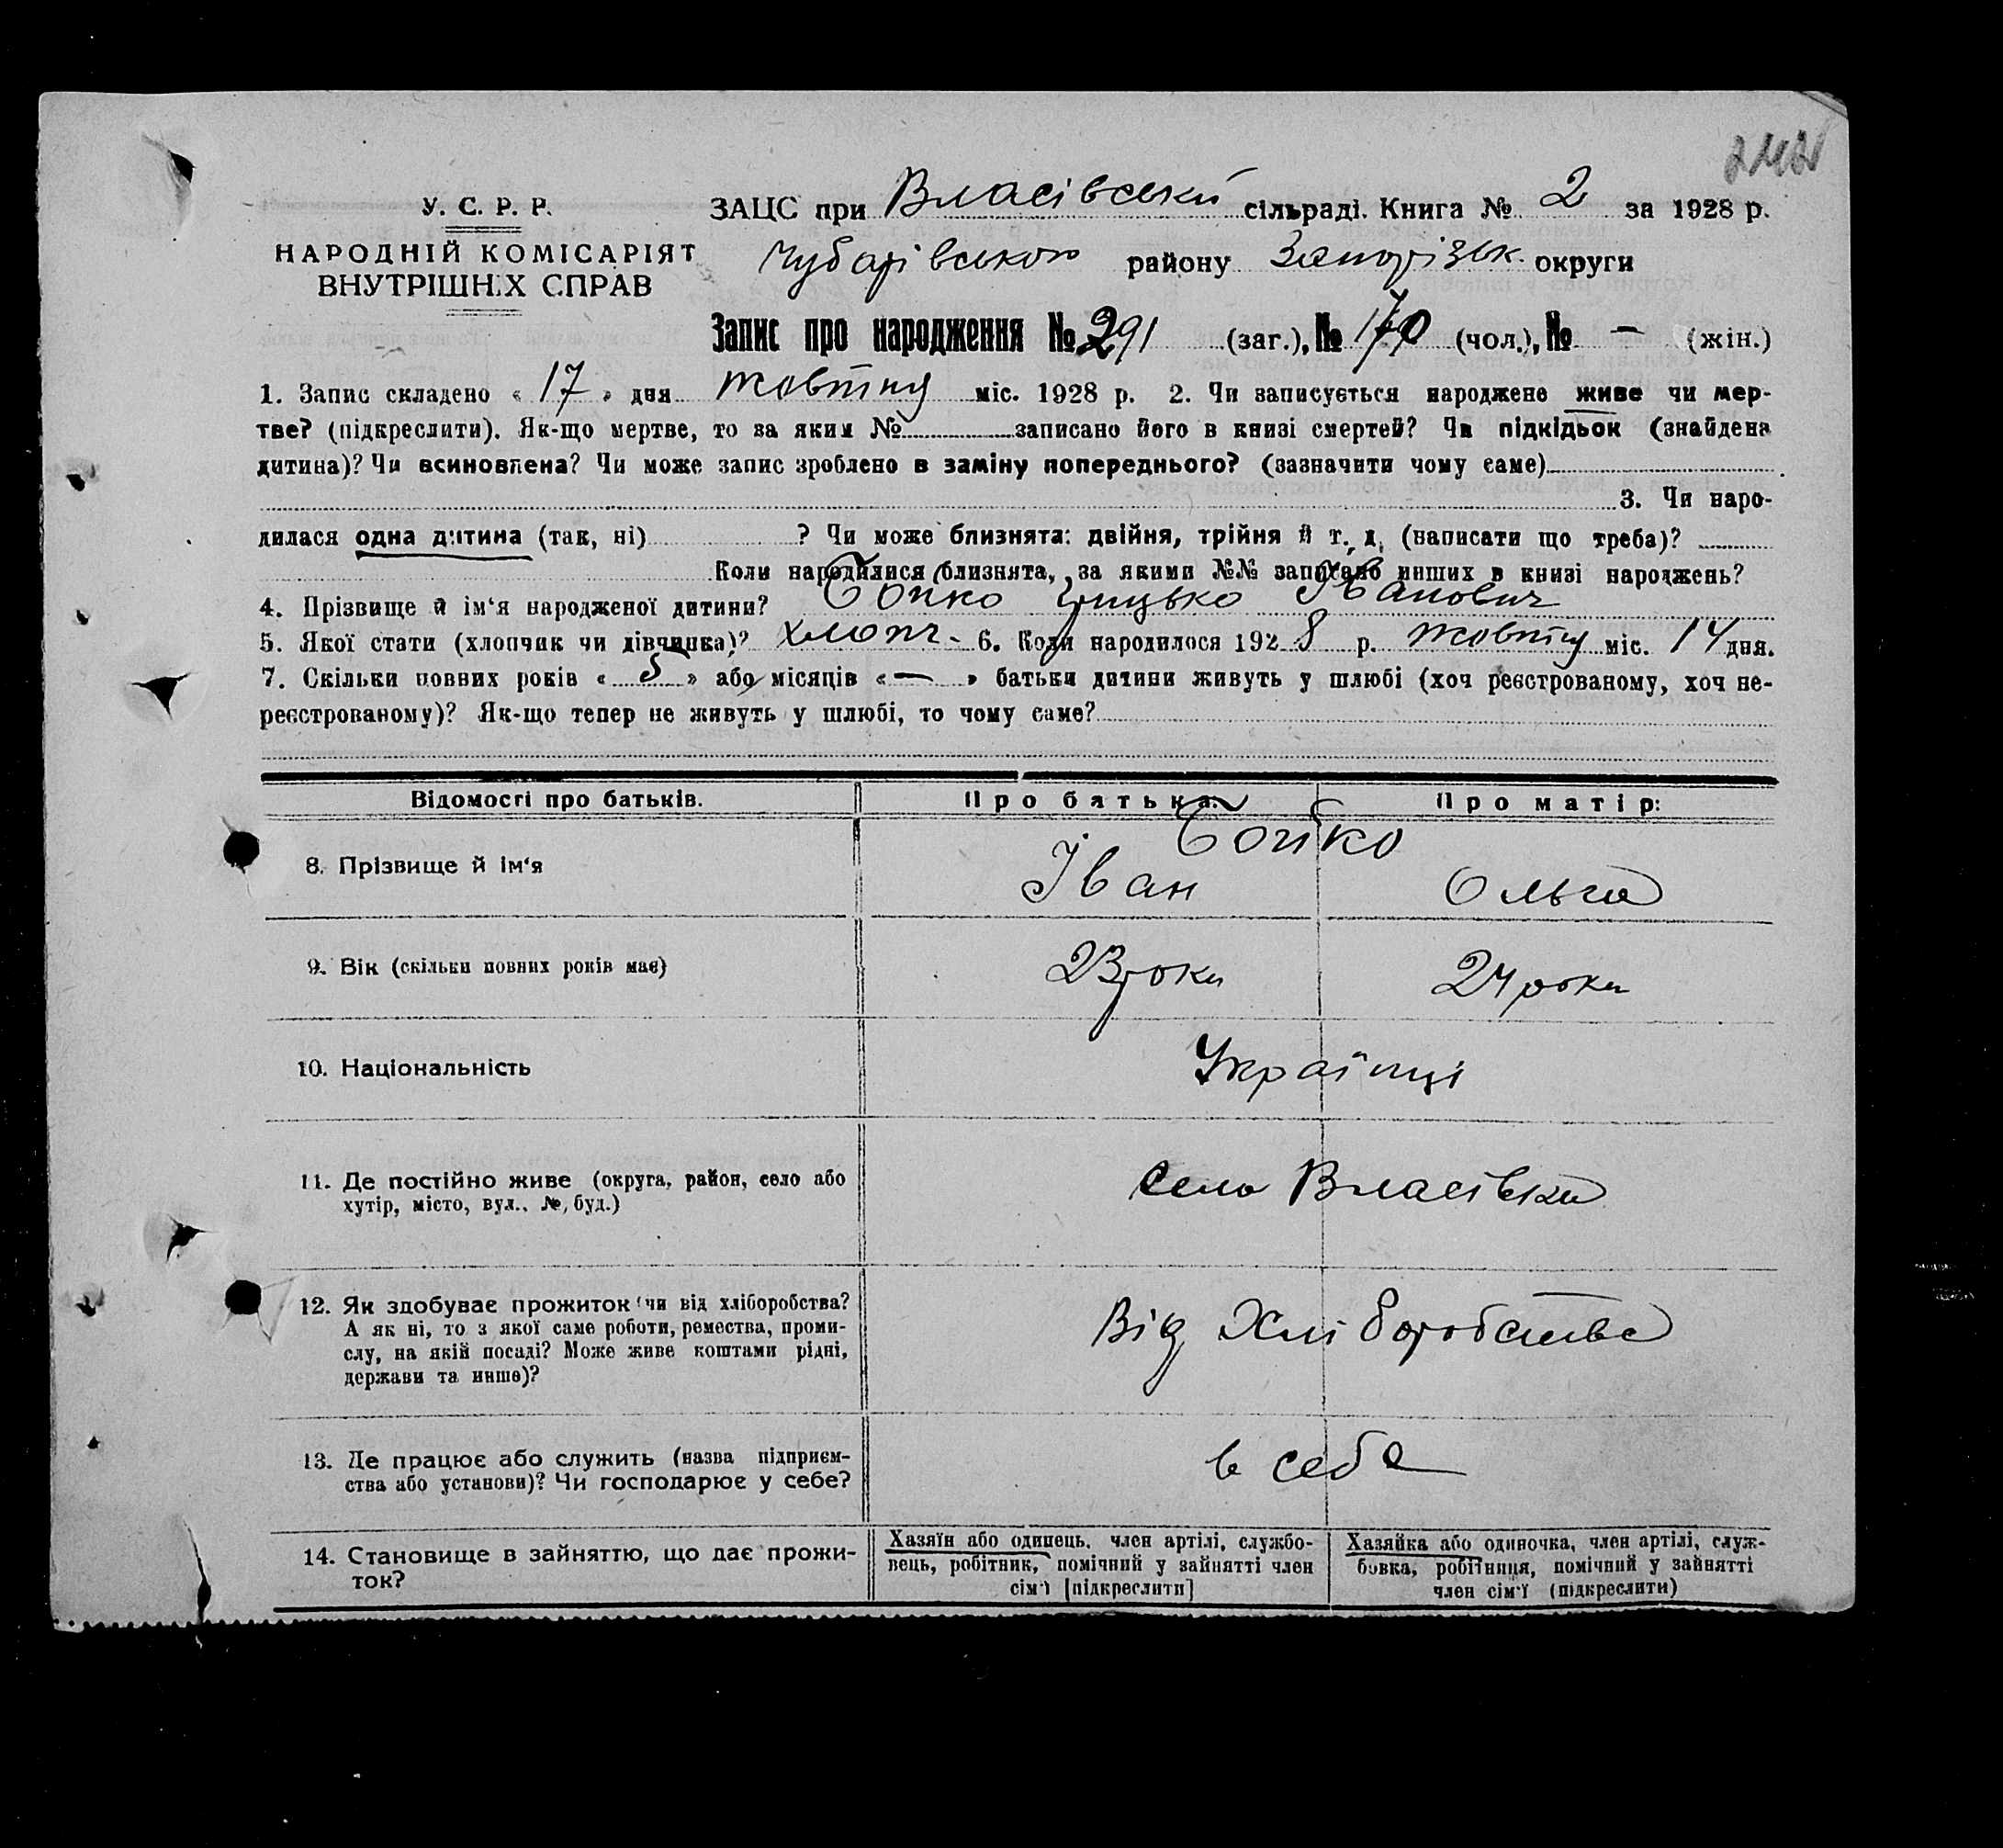 242
У. С. Р. Р.
НАРОДНІЙ КОМІСАРІЯТ
ВНУТРІШНІХ СПРАВ
ЗАЦС при Власівській сільраді. Книга № 2 за 1928 р.
Чубарівського району Запорізьк. округи
Запис про народження № 291 (заг.), № 170 (чол.), № — (жін.)
1. Запис складено « 17 » дня жовтня міс. 1928 р. 2. Чи записується народжене живе чи мер-
тве? (підкреслити). Як-що мертве, то за яким № записано його в книзі смертей? Чи підкідьок (знайдена
дитина)? Чи всиновлена? Чи може запис зроблено в заміну попереднього? (зазначити чому саме)
3. Чи наро-
дилася одна дитина (так, ні) ? Чи може близнята: двійня, трійня й т. д. (написати що треба)?
Коли народилися близнята, за якими №№ записано инших в книзі народжень?
4. Прізвище й ім‘я народженої дитини? Бойко Грицько Іванович
5. Якої стати (хлопчик чи дівчинка)? хлопч- 6. Коли народилося 1928 р. жовтня міс. 14 дня.
7. Скільки повних років « 5 » або місяців « — » батьки дитини живуть у шлюбі (хоч реєстрованому, хоч не-
реєстрованому)? Як-що тепер не живуть у шлюбі, то чому саме?
Відомості про батьків. Про батька: Про матір:
Бойко
8. Прізвище й ім‘я Іван Ольга
9. Вік (скільки повних років має) 23 роки 24 роки
10. Національність Українці
11. Де постійно живе (округа, район, село або
хутір, місто, вул., №, буд.)
село Власівка
12. Як здобуває прожиток чи від хліборобства?
А як ні, то з якої саме роботи, ремества, проми-
слу, на якій посаді? Може живе коштами рідні,
держави та инше)?
Від Хліборобства
13. Де працює або служить (назва підприєм-
ства або установи)? Чи господарює у себе?
в себе
14. Становище в зайняттю, що дає прожи-
ток?
Хазяїн або одинець, член артілі, службо-
вець, робітник, помічний у зайнятті член
сім‘ї [підкреслити]
Хазяйка або одиночка, член артілі, служ-
бовка, робітниця, помічний у зайнятті
член сім‘ї (підкреслити)